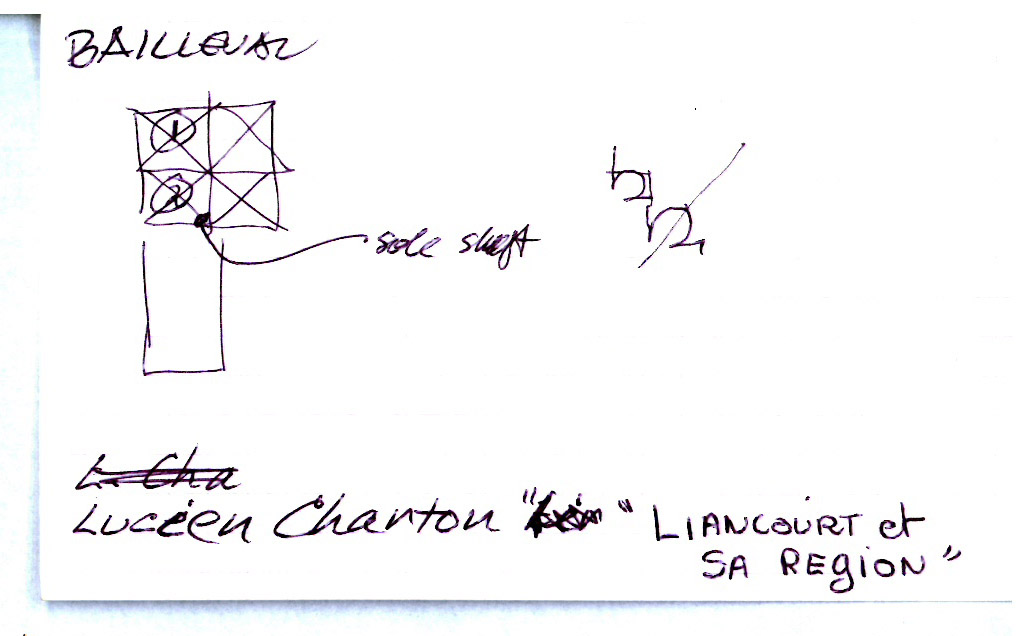 BAILLEVAL
1
2
sole shaft
L. Cha
Lucien Charton " " LIANCOURT et
SA REGION"